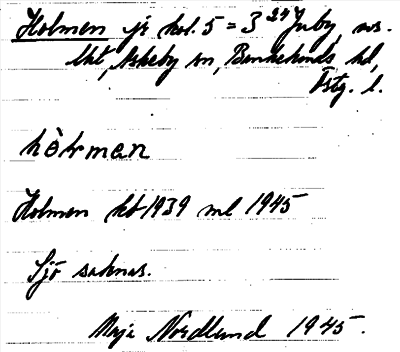 Holmen jr kol. 5 = 3 Juby, ns.
Lht, Askeby sn, Bankekinds hd,
Östg. l.
hòrmen
Holmen kb 1939 ml 1945
Sjö saknas.
Maja Nordlund 1945.